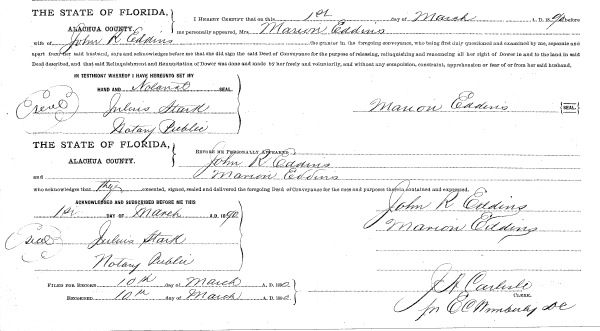 THE STATE OF FLORIDA,
ALACHUA COUNTY.
I HEREBY CERTIFY that on this 1st day of March A. D. 1890 before
me personally appeared, Mrs. Marion Eddins
wife of John R Eddins the grantor in the foregoing conveyance, who being first duly questioned and examined by me, separate and
apart from her said husband, says and acknowledges before me that she did sign the said Deed of Conveyance for the purpose of releasing, relinquishing and renouncing all her right of Dower in and to the land in said
Deed described, and that said Relinquishment and Renunciation of Dower was done and made by her freely and voluntarily, and without any compulsion, constraint, apprehension or fear of or from her said husband.
IN TESTIMONY WHEREOF I HAVE HEREUNTO SET MY
HAND AND Notarial SEAL.
Seal Julius Stark
Notary Public
Marion Eddins SEAL
THE STATE OF FLORIDA,
ALACHUA COUNTY.
BEFORE ME PERSONALLY APPEARED John R. Eddins
and Marion Eddins
who acknowledges that they executed, signed, sealed and delivered the foregoing Deed of Conveyance for the uses and purposes therein contained and expressed.
ACKNOWLEDGED AND SUBSCRIBED BEFORE ME THIS
1st DAY OF March A. D. 1890
John R Eddins
Marion Eddins
Seal Julius Stark
Notary Public
FILED FOR RECORD 10th day of March A. D. 1890
RECORDED 10th day of March A. D. 1890
J A Carlisle
CLERK.
pr E C Wimberly DC